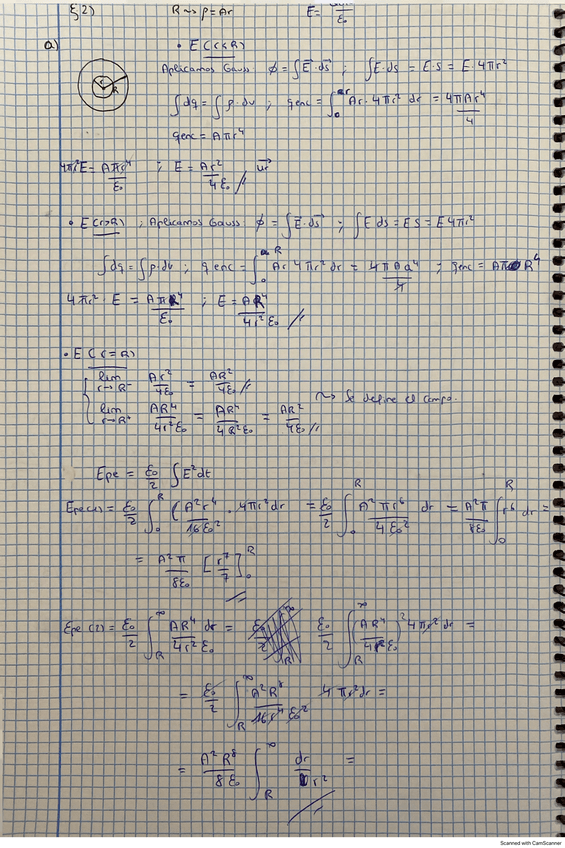 ξ2) R ⇝ ρ=Ar E= /ε₀
a) • E(r<R)
r R
Aplicamos Gauss ϕ = ∫E⃗·ds⃗ ; ∫E·ds = E·S = E·4πr²
∫dq = ∫ρ·dv ; qenc = ∫₀^r Ar·4πr² dr = 4πAr⁴/4
qenc = Aπr⁴
4πr²E = Aπr⁴/ε₀ ; E = Ar²/4ε₀ // u⃗r
• E(r>R) ; Aplicamos Gauss ϕ = ∫E⃗·ds⃗ ; ∫E ds = ES = E4πr²
∫dq = ∫ρ·dv ; qenc = ∫₀^R Ar 4πr² dr = 4πAa⁴/4 ; qenc = Aπ R⁴
4πr²·E = AπR⁴/ε₀ ; E = AR⁴/4r²ε₀ //
• E(r=R)
lim r→R⁻ Ar²/4ε₀ = AR²/4ε₀ //
⇝ Se define el campo.
lim r→R⁺ AR⁴/4r²ε₀ = AR⁴/4R²ε₀ = AR²/4ε₀ //
Epe = ε₀/2 ∫E²dt
Epe(1) = ε₀/2 ∫₀^R (A²r⁴/16ε₀² · 4πr²dr = ε₀/2 ∫₀^R A²πr⁶/4ε₀² dr = A²π/8ε₀ ∫₀^R r⁶dr =
= A²π/8ε₀ [r⁷/7]₀^R //
Epe(2) = ε₀/2 ∫_R^∞ AR⁴dr/4r²ε₀ = ε₀/2 ∫_R^∞ (AR⁴/4r²ε₀)² 4πr²dr =
= ε₀/2 ∫_R^∞ A²R⁸/16r⁴ε₀² 4πr²dr =
= A²R⁸/8ε₀ ∫_R^∞ dr/r² = //
Scanned with CamScanner